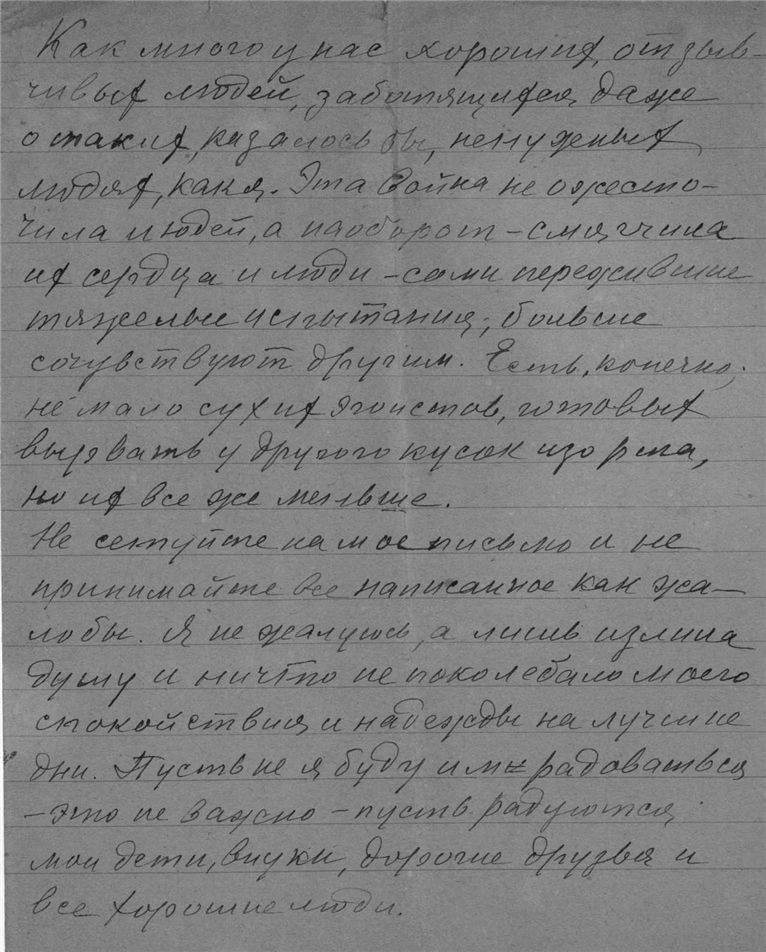 Как много у нас хороших, отзыв-
чивых людей, заботящихся даже
о таких, казалось бы, ненужных
людях, как я. Эта война не ожесто-
чила людей, а наоборот - смягчила
их сердца и люди - сами пережившие
тяжелые испытания, больше
сочувствуют другим. Есть, конечно,
не мало сухих эгоистов, готовых
вырвать у другого кусок изо рта,
но их все же меньше.
Не сетуйте на мое письмо и не
принимайте все написанное как жа-
лобы. Я не жалуюсь, а лишь излила
душу и ничто не поколебало моего
спокойствия и надежды на лучшие
дни. Пусть не я буду ими радоваться
- это не важно - пусть радуются
мои дети, внуки, дорогие друзья и
все хорошие люди.